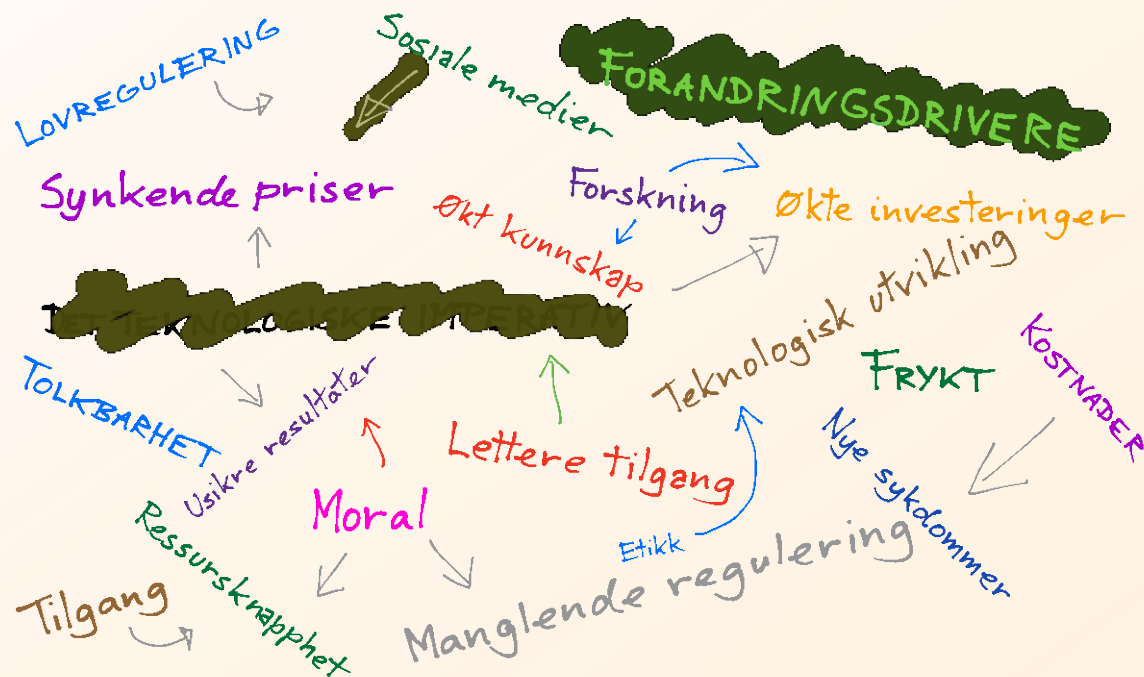 LOVREGULERING
Sosiale medier
FORANDRINGSDRIVERE
Synkende priser
Forskning
Økt kunnskap
Økte investeringer
DET TEKNOLOGISKE IMPERATIV
Teknologisk utvikling
TOLKBARHET
Usikre resultater
FRYKT
KOSTNADER
Lettere tilgang
Nye sykdommer
Moral
Etikk
Ressursknapphet
Manglende regulering
Tilgang